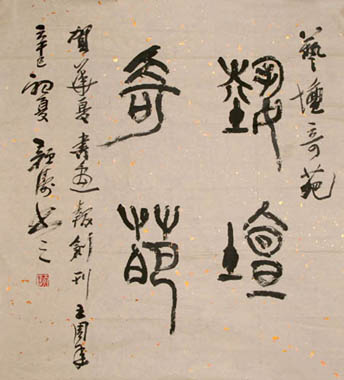 藝壇奇葩
藝壇
奇葩
賀華夏書畫報創刊五周年
辛巳初夏